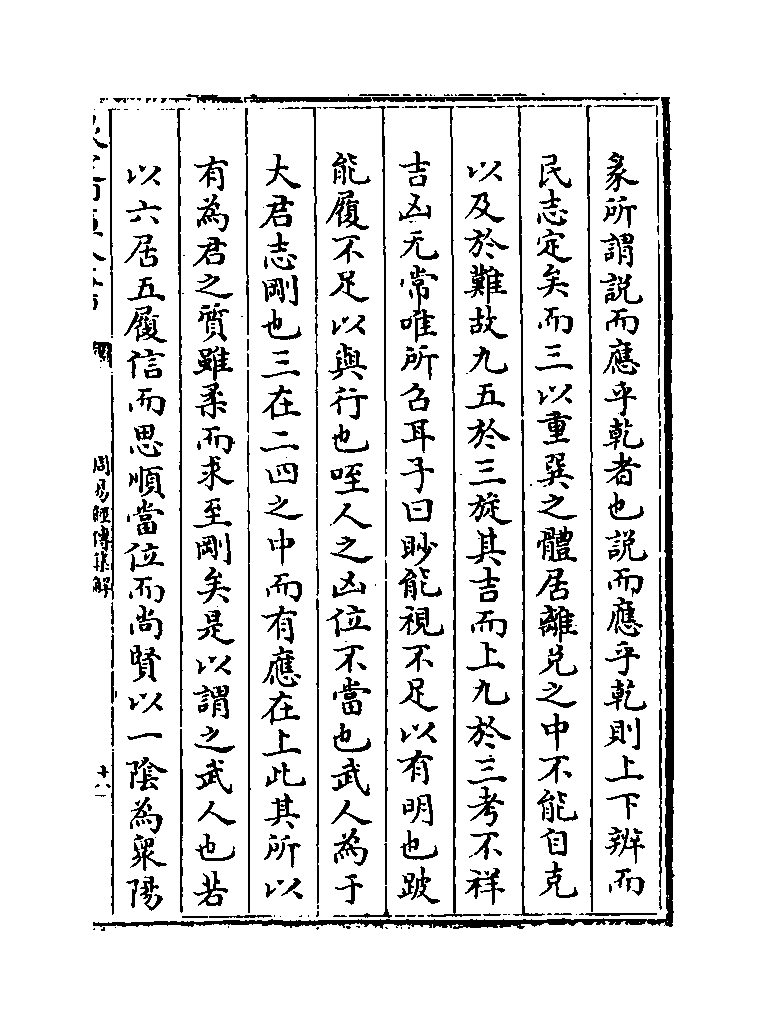 彖所謂説而應乎乾者也説而應乎乾則上下辨而
民志定矣而三以重巽之體居離兑之中不能自克
以及於難故九五於三旋其吉而上九於三考不祥
吉凶无常唯所召耳子曰眇能視不足以有明也跛
能履不足以與行也咥人之凶位不當也武人為于
大君志剛也三在二四之中而有應在上此其所以
有為君之質雖柔而求至剛矣是以謂之武人也若
以六居五履信而思順當位而尚賢以一隂為衆陽
周易經傳集解
十八